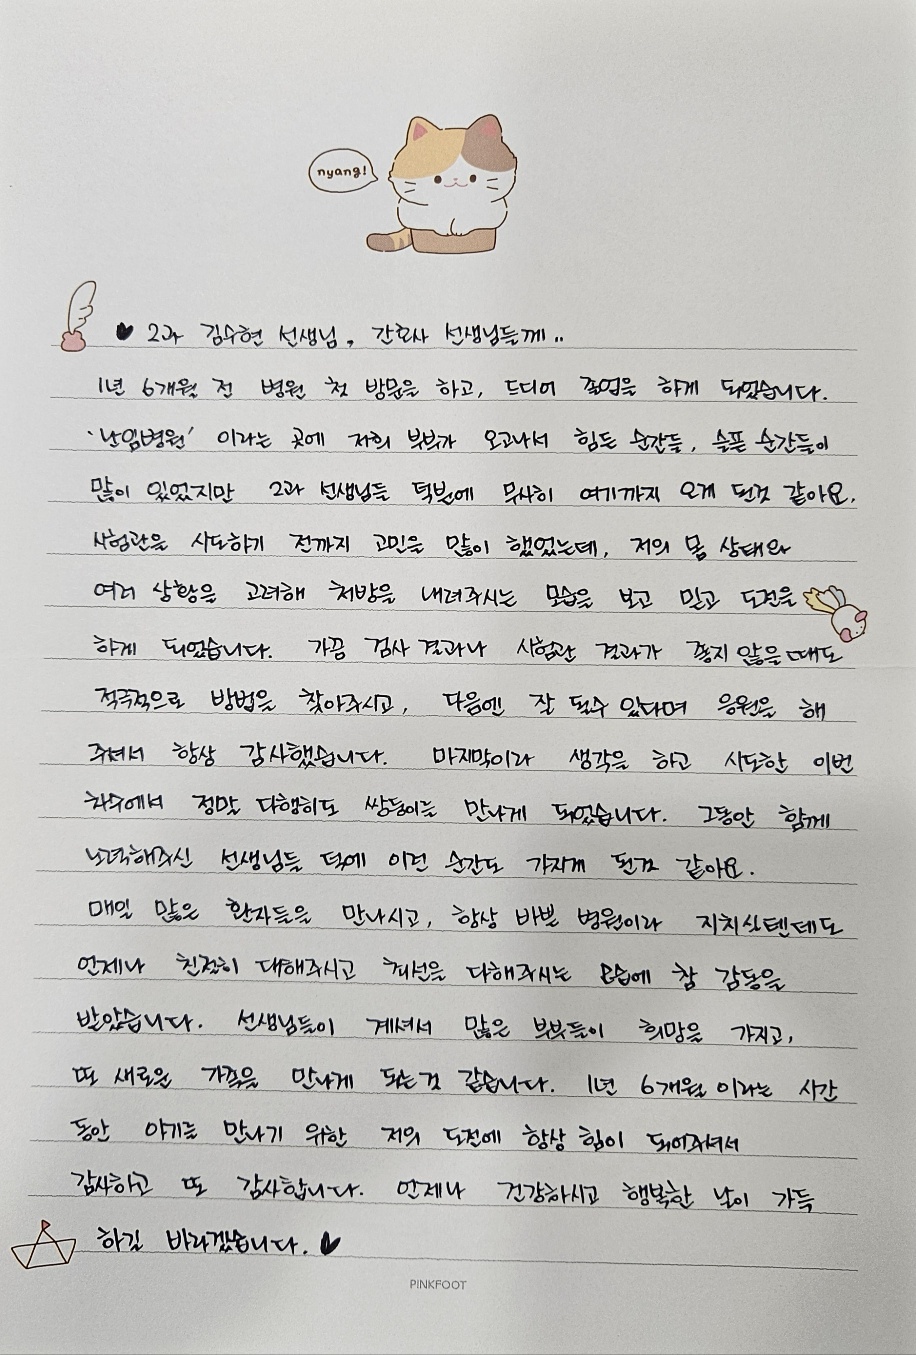 nyang!
♥ 2과 김수현 선생님, 간호사 선생님들께..
1년 6개월 전 병원 첫 방문을 하고, 드디어 졸업을 하게 되었습니다.
'난임병원' 이라는 곳에 저희 부부가 오고나서 힘든 순간들, 슬픈 순간들이
많이 있었지만 2과 선생님들 덕분에 무사히 여기까지 오게 된것 같아요.
시험관을 시도하기 전까지 고민을 많이 했었는데, 저의 몸 상태와
여러 상황을 고려해 처방을 내려주시는 모습을 보고 믿고 도전을
하게 되었습니다. 가끔 검사 결과나 시험관 결과가 좋지 않을때도
적극적으로 방법을 찾아주시고, 다음엔 잘 될수 있다며 응원을 해
주셔서 항상 감사했습니다. 마지막이라 생각을 하고 시도한 이번
차수에서 정말 다행히도 쌍둥이를 만나게 되었습니다. 그동안 함께
노력해주신 선생님들 덕에 이런 순간도 가지게 된것 같아요.
매일 많은 환자들을 만나시고, 항상 바쁜 병원이라 지치실텐데도
언제나 친절히 대해주시고 최선을 다해주시는 모습에 참 감동을
받았습니다. 선생님들이 계셔서 많은 부부들이 희망을 가지고,
또 새로운 가족을 만나게 되는것 같습니다. 1년 6개월이라는 시간
동안 아기를 만나기 위한 저의 도전에 항상 힘이 되어주셔서
감사하고 또 감사합니다. 언제나 건강하시고 행복한 날이 가득
하길 바라겠습니다. ♥
PINKFOOT